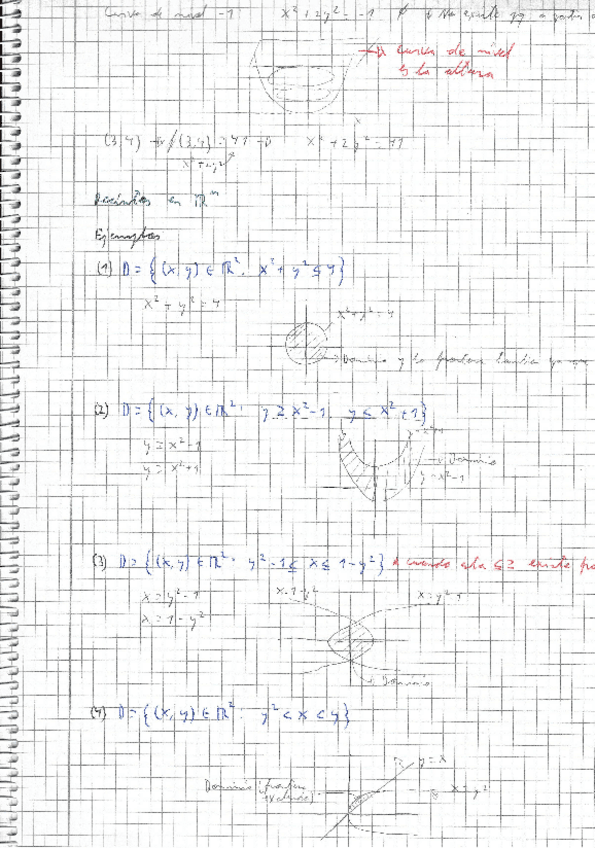 Curva de nivel -1 x² + 2y² = -1 ∄ No existe pq
curva de nivel
es la altura
(3,4) → f(3,4) = 41 → x² + 2y² = 41
x² + 2y²
Recintos en ℝⁿ
Ejemplos
(1) D = {(x, y) ∈ ℝ² : x² + y² ≤ 4}
x² + y² = 4
x² + y² = 4
Dominio y la frontera
(2) D = {(x, y) ∈ ℝ² : y ≥ x² - 1 y < x² + 1}
y = x² - 1
y = x² + 1
Dominio
y = x² - 1
(3) D = {(x, y) ∈ ℝ² : y² - 1 ≤ x ≤ 1 - y²} cuando ≤ ≥ existe
x = y² - 1
x = 1 - y²
x = 1 - y²
x = y² - 1
Dominio
(4) D = {(x, y) ∈ ℝ² : y² < x < y}
y = x
Dominio (frontera
excluida)
x = y²